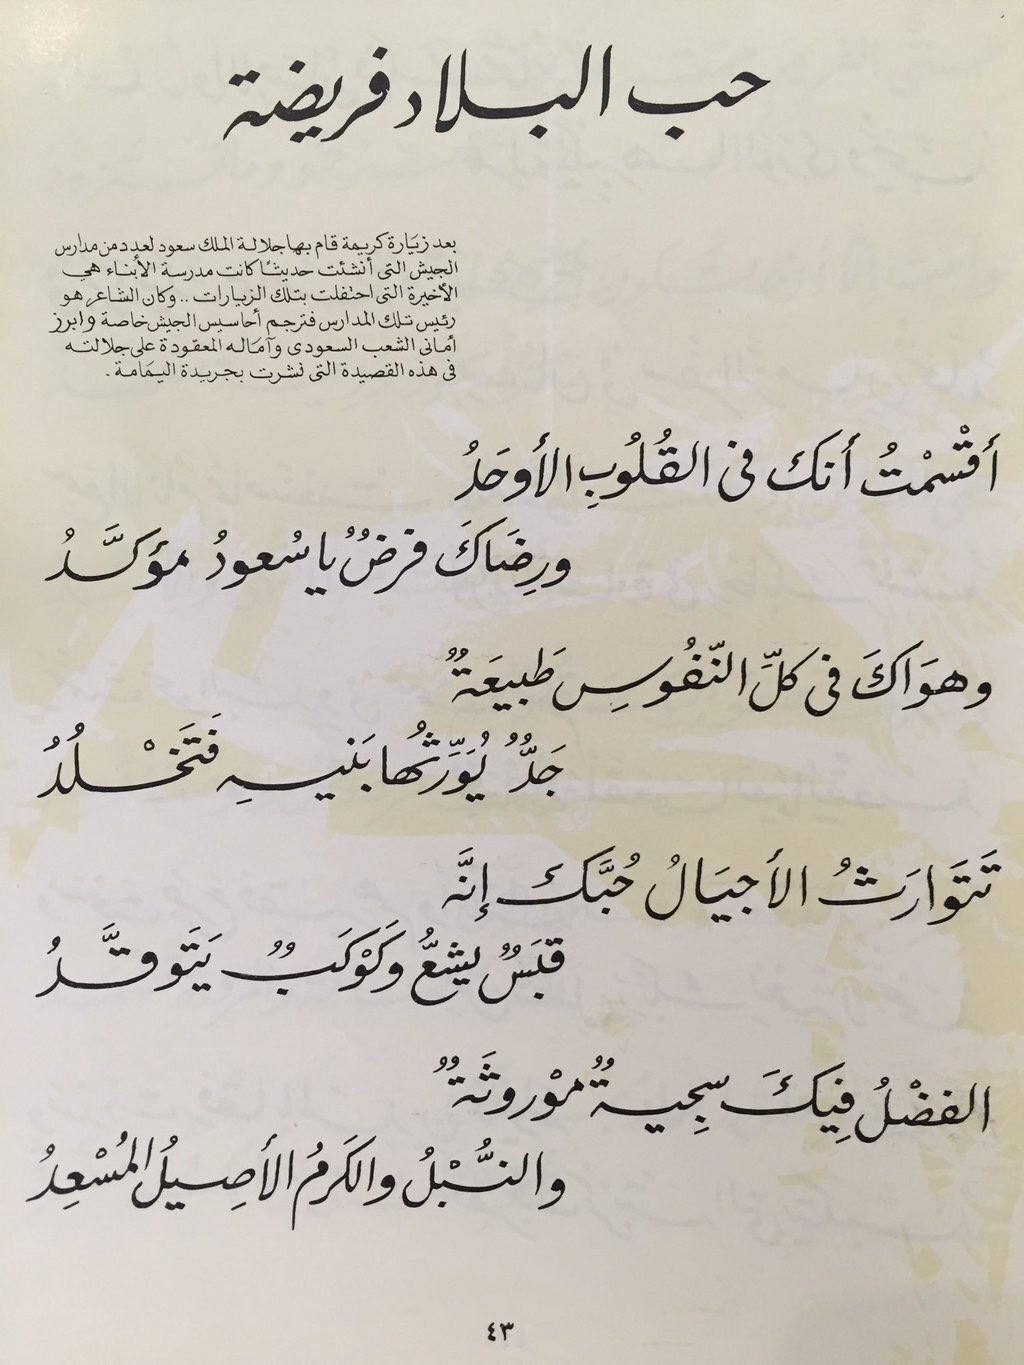 حب البلاد فريضة
بعد زيَارة كريمة قام بها جلالة الملك سعود لعدد من مدارس
الجيش التى أنشئت حديثًا كانت مدرسة الأبناء هي
الأخيرة التى احتفلت بتلك الزيارات .. وكان الشاعر هو
رئيس تلك المدارس فترجم أحاسيس الجيش خاصة وابرز
أمانى الشعب السعودى وآماله المعقودة على جلالته
فى هذه القصيدة التى نشرت بجريدة اليمَامة .
أقْسمْتُ أنكَ فى القُلُوبِ الأوحَدُ
ورِضَاكَ فرضٌ يا سُعودُ مؤكَّدُ
وهوَاكَ فى كلِّ النّفُوسِ طَبيعَةٌ
جَدٌّ يُوَرِّثُها بَنيهِ فَتَخْلُدُ
تَتَوارَثُ الأجيَالُ حُبَّكَ إنَّه
قبَسٌ يشعُّ وكَوْكَبٌ يَتَوقَّدُ
الفضْلُ فِيكَ سجِيةٌ موْروثَةٌ
والنُّبْلُ والكَرمُ الأصِيلُ المُسْعِدُ
٤٣